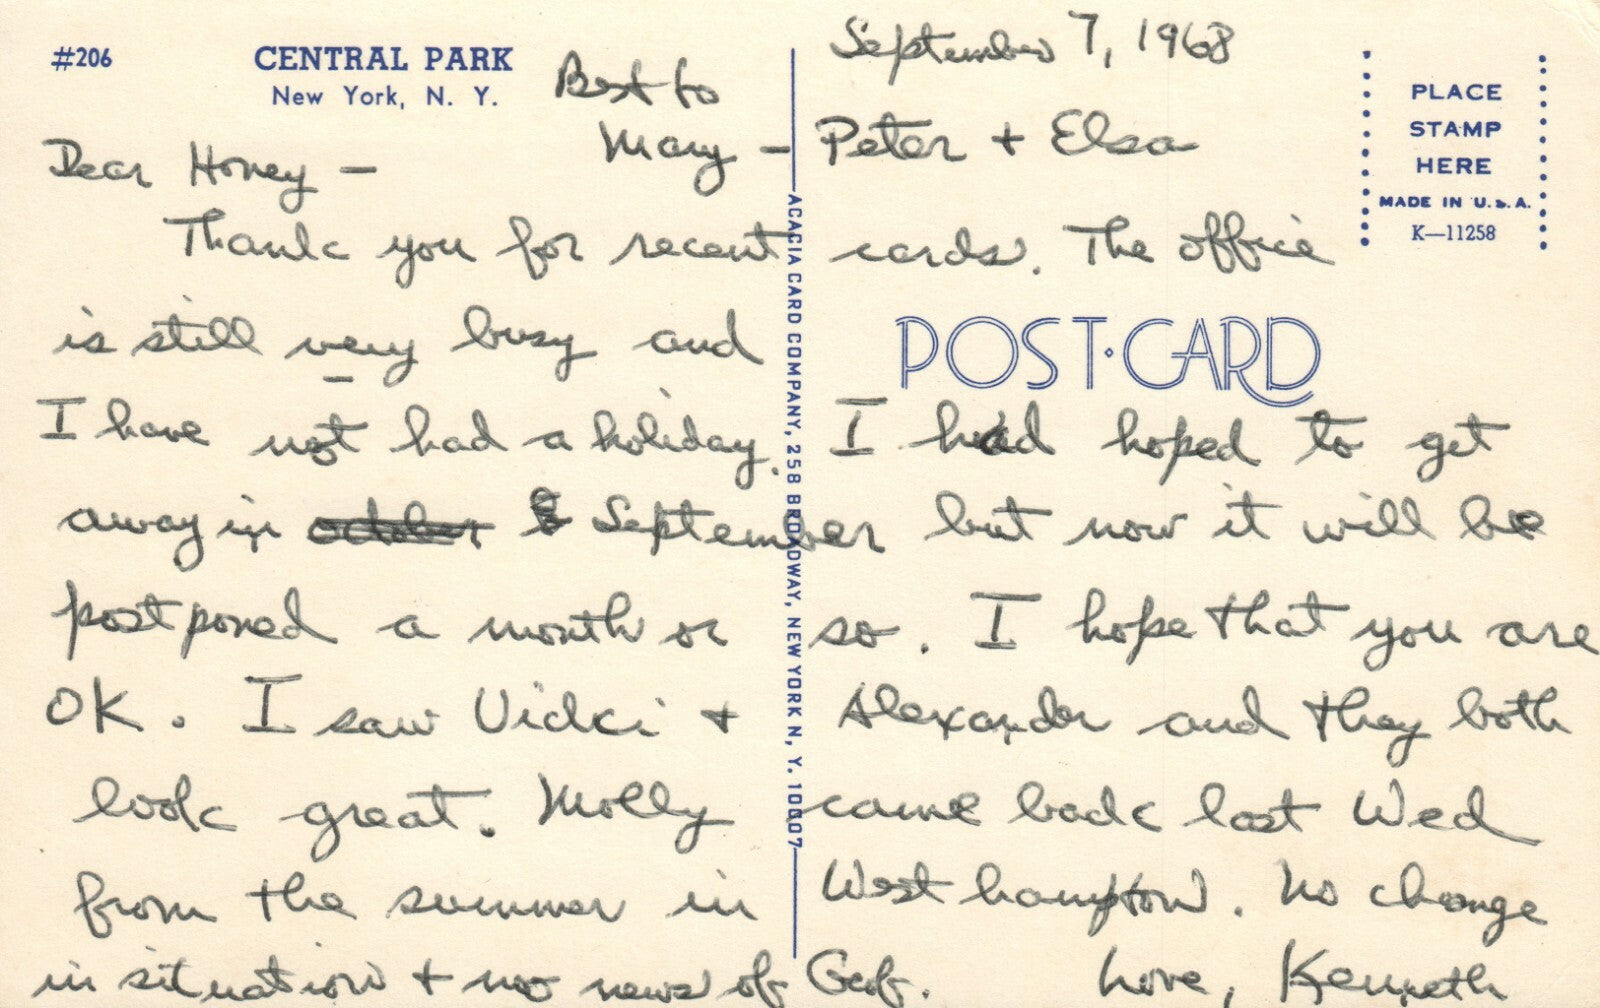 #206
CENTRAL PARK
New York, N. Y.
September 7, 1968
Best to
Mary - Peter + Elsa
Dear Honey -
Thank you for recent cards. The office
is still very busy and
I have not had a holiday. I had hoped to get
away in September but now it will be
postponed a month or so. I hope that you are
OK. I saw Vicki + Alexander and they both
look great. Molly came back last Wed
from the summer in Westhampton. No change
in situation + no news of
Love, Kenneth
PLACE
STAMP
HERE
MADE IN U.S.A.
K-11258
POST·CARD
ACACIA CARD COMPANY, 258 BROADWAY, NEW YORK N, Y. 10007